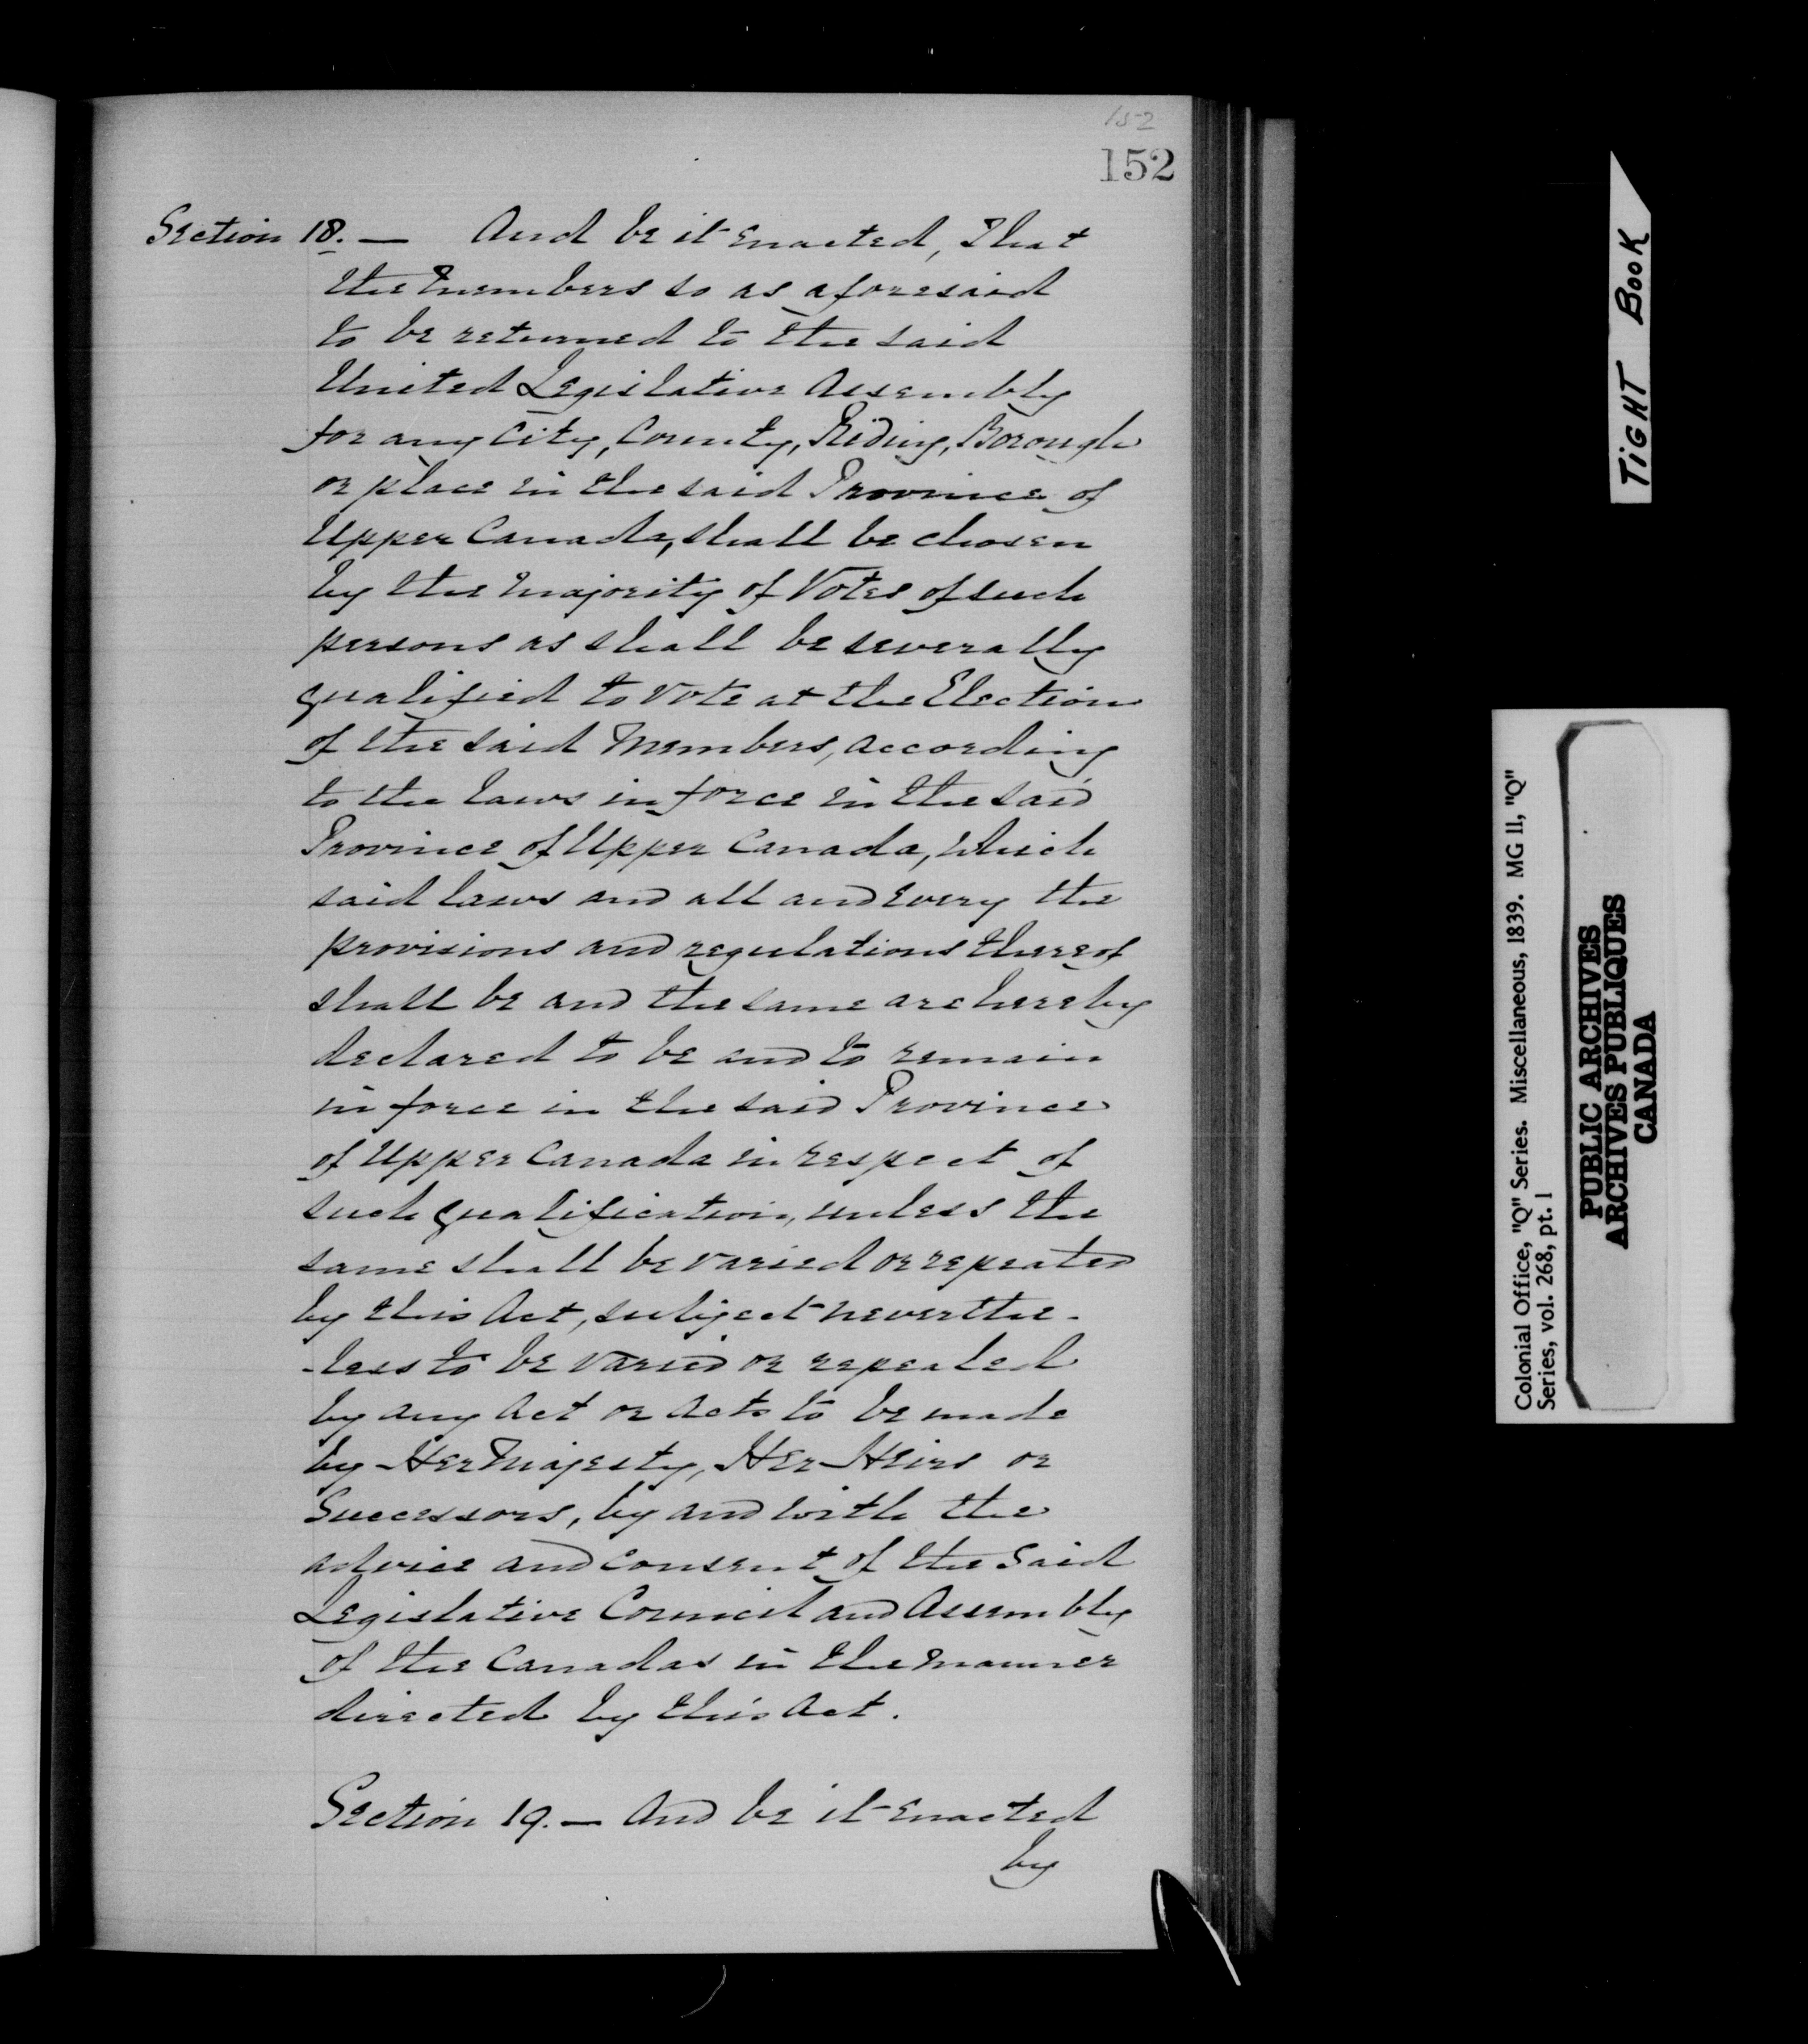 152
152
Section 18. — And be it enacted, That
the Members so as aforesaid
to be returned to the said
United Legislative Assembly
for any City, County, Riding, Borough
or place in the said Province of
Upper Canada, shall be chosen
by the Majority of Votes of such
persons as shall be severally
qualified to Vote at the Election
of the said Members, according
to the laws in force in the said
Province of Upper Canada, which
said laws and all and every the
provisions and regulations thereof
shall be and the same are hereby
declared to be and to remain
in force in the said Province
of Upper Canada in respect of
such qualification, unless the
same shall be varied or repealed
by this Act, subject neverthe-
-less to be varied or repealed
by any Act or Acts to be made
by Her Majesty, Her Heirs or
Successors, by and with the
advice and consent of the said
Legislative Council and Assembly
of the Canadas in the manner
directed by this Act.
Section 19. — And be it enacted
by
TIGHT BOOK
Colonial Office, "Q" Series. Miscellaneous, 1839. MG 11, "Q"
Series, vol. 268, pt. 1
PUBLIC ARCHIVES
ARCHIVES PUBLIQUES
CANADA